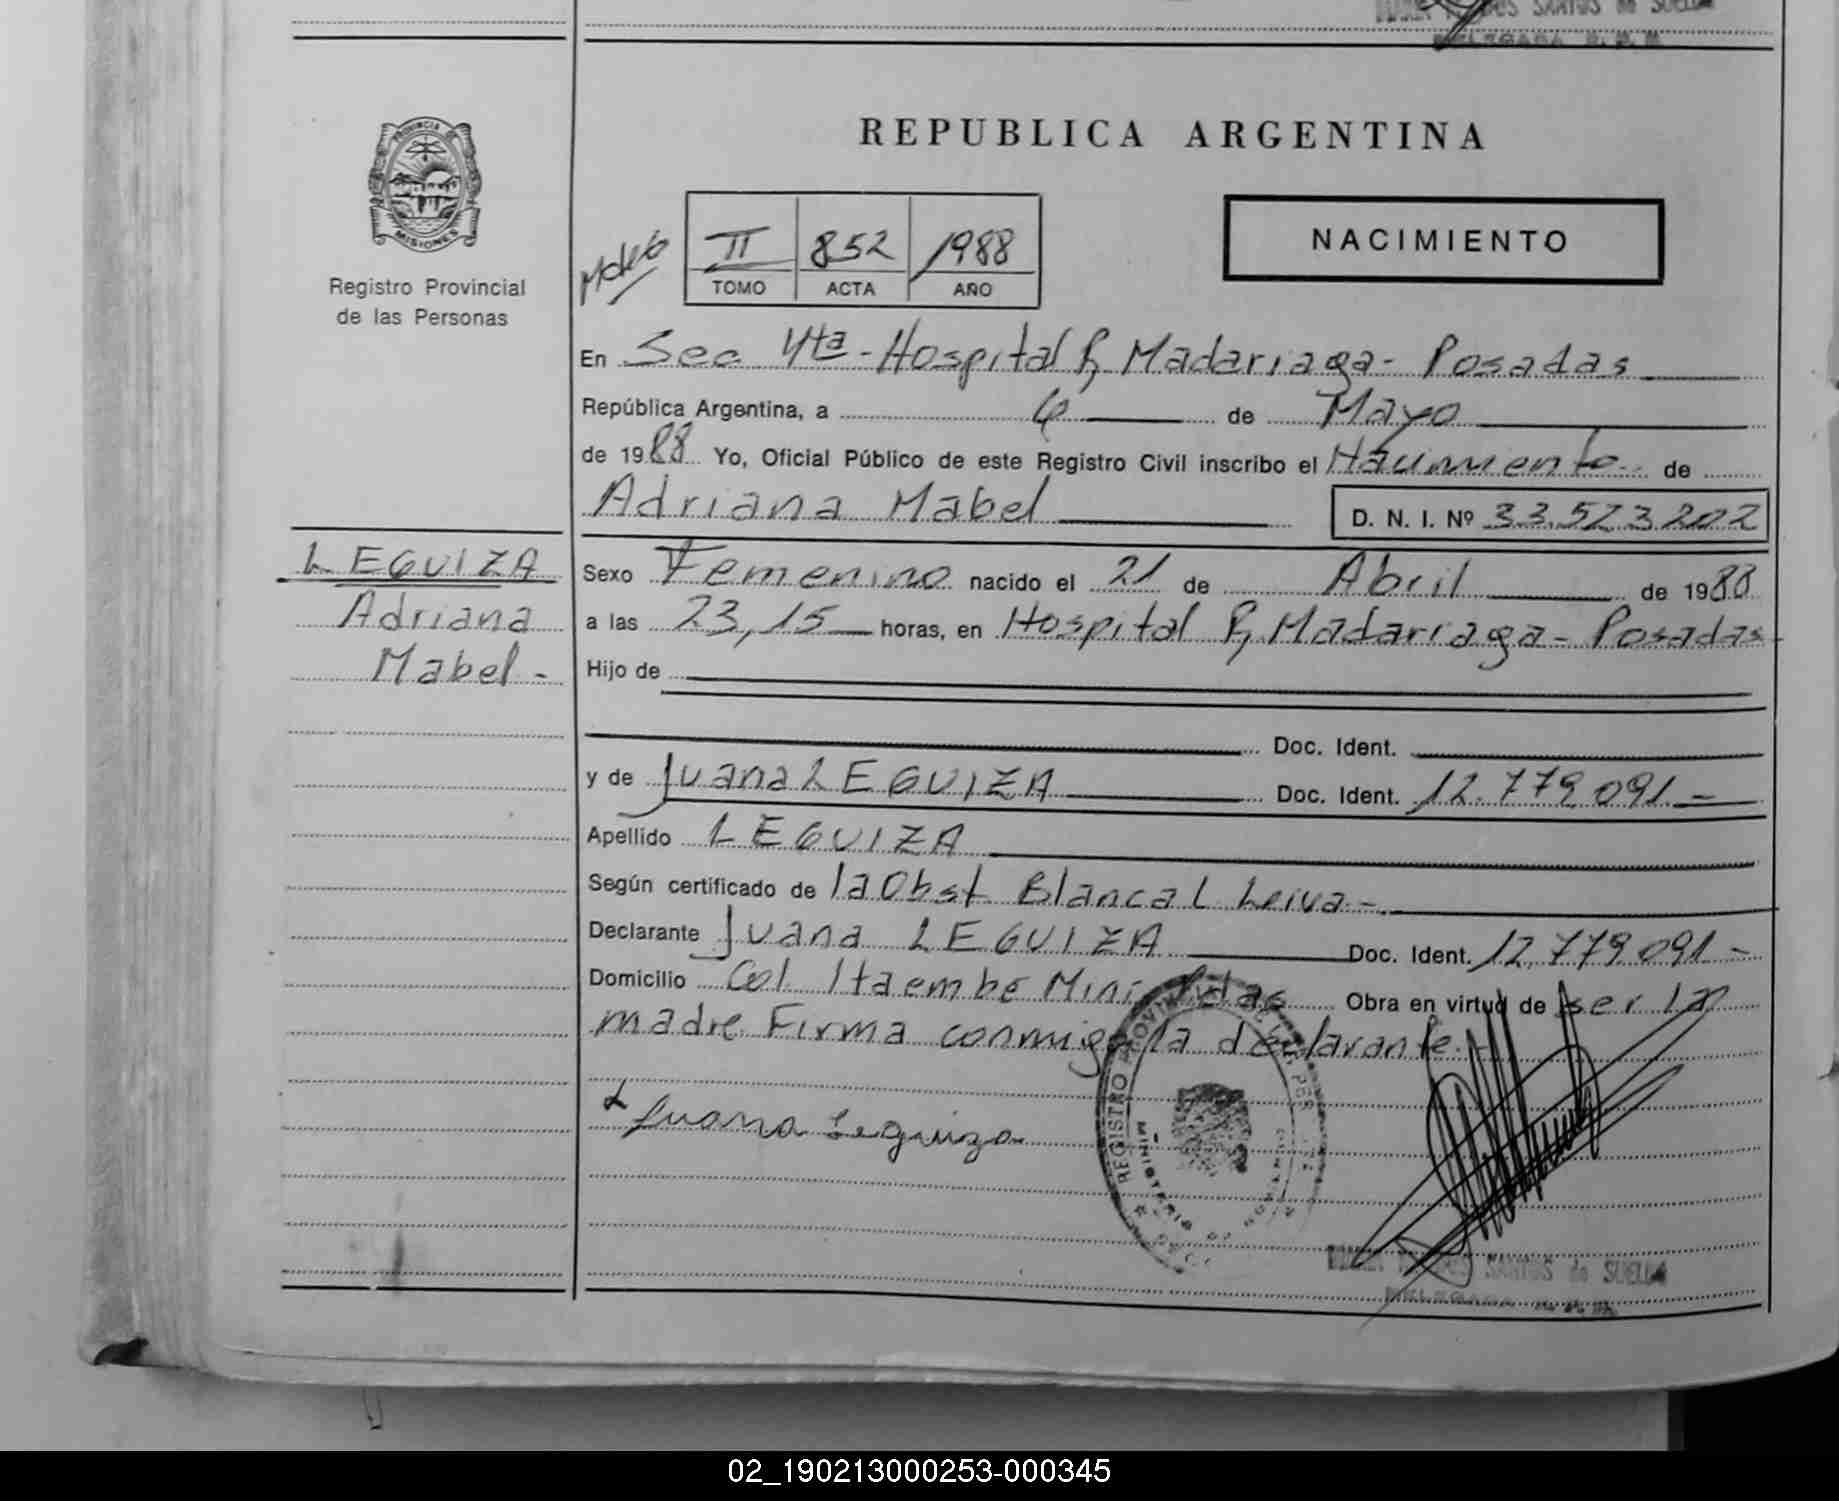 SANTOS de SUELLA
DELEGADA R. P. P.
PROVINCIA DE
MISIONES
Registro Provincial
de las Personas
REPUBLICA ARGENTINA
II 852 1988
TOMO ACTA AÑO
NACIMIENTO
En Sec 4ta - Hospital R, Madariaga - Posadas
República Argentina, a 6 de Mayo
de 1988 Yo, Oficial Público de este Registro Civil inscribo el Nacimiento de
Adriana Mabel D. N. I. Nº 33.523.202
LEGUIZA
Adriana
Mabel -
Sexo Femenino nacido el 21 de Abril de 1988
a las 23,15 horas, en Hospital R, Madariaga - Posadas -
Hijo de
Doc. Ident.
y de Juana LEGUIZA Doc. Ident. 12.779.091 -
Apellido LEGUIZA
Según certificado de la Obst Blanca L Leiva -
Declarante Juana LEGUIZA Doc. Ident. 12.779.091 -
Domicilio Col. Itaembe Mini Pdas Obra en virtud de ser la
madre. Firma conmigo la declarante. -
Juana Leguiza
REGISTRO PROVINCIAL DE LAS PERSONAS
MINISTERIO DE GOBIERNO
SANTOS de SUELLA
DELEGADA R. P. P.
02_190213000253-000345